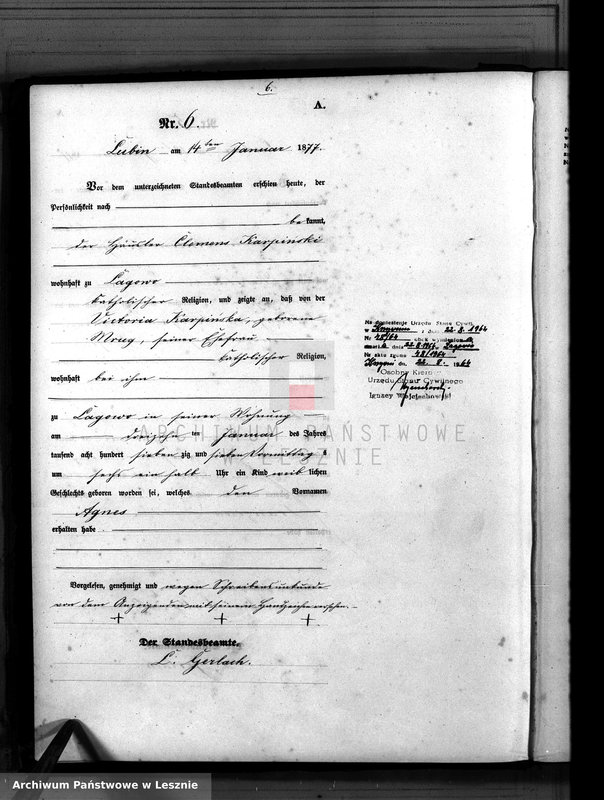 6.
A.
Nr. 6.
Lubin am 14ten Januar 1877.
Vor dem unterzeichneten Standesbeamten erschien heute, der
Persönlichkeit nach
bekannt,
der Häusler Clemens Karpinski
wohnhaft zu Lagowo
katholischer Religion, und zeigte an, daß von der
Victoria Karpinska, geborene
Mrug, seiner Ehefrau
katholischer Religion,
wohnhaft bei ihm
zu Lagowo in seiner Wohnung
am dreizehnten Januar des Jahres
tausend acht hundert siebenzig und sieben Vormittags
um sechs ein halb Uhr ein Kind weiblichen
Geschlechts geboren worden sei, welches den Vornamen
Agnes
erhalten habe.
Vorgelesen, genehmigt und wegen Schreibensunkunde
von dem Anzeigenden mit seinem Handzeichen versehen.
+ + +
Der Standesbeamte.
L. Gerlach.
Na doniesienie Urzędu Stanu Cywil.
w dnia 22.8.1964
Nr 48/64
dnia 22.8.1964
Nr aktu zgonu 48/1964
dn. 22.8.1964
Urzędu Stanu Cywilnego
Ignacy Wojciechowski
ARCHIWUM PAŃSTWOWE
W LESZNIE
Archiwum Państwowe w Lesznie